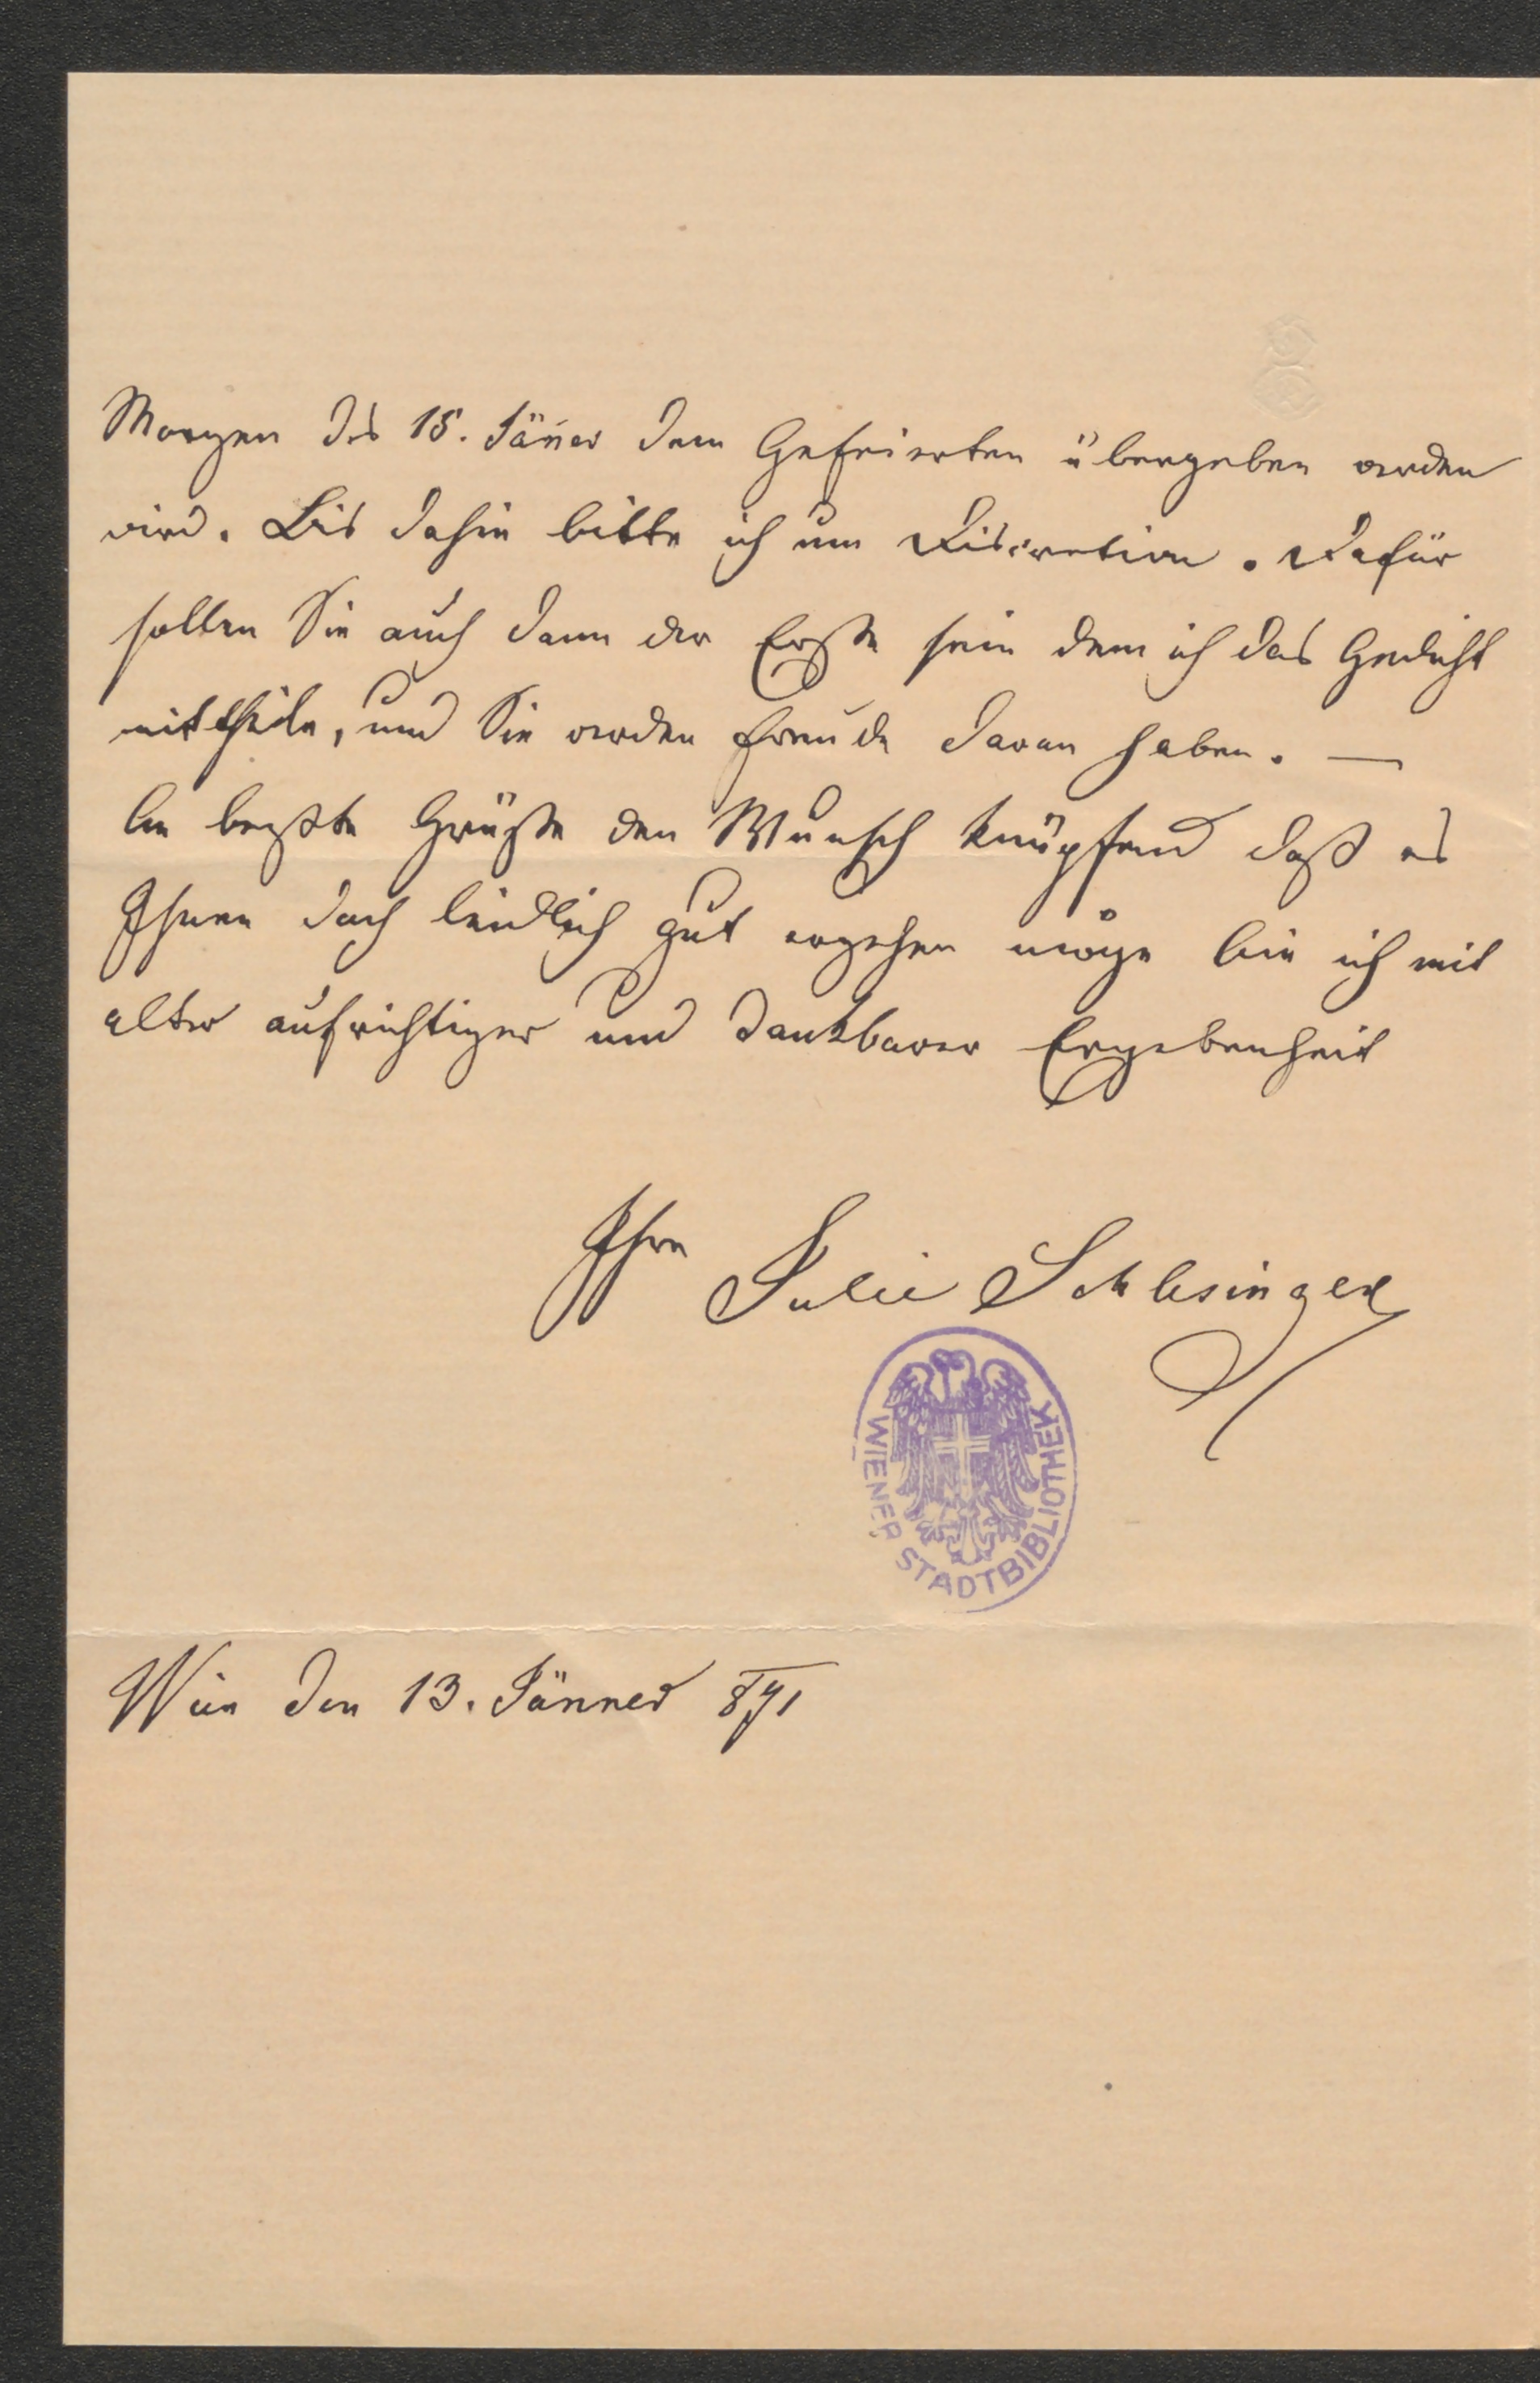 Morgen des 15. Jänner dem Gefeierten übergeben werden
wird. Bis dahin bitte ich um Discretion. Dafür
sollen Sie auch dann der Erste sein dem ich das Gedicht
mittheile, und Sie werden Freude daran haben. —
An beßte Grüße den Wunsch knüpfend daß es
Ihnen doch leidlich gut ergehen möge bin ich mit
alter aufrichtiger und dankbarer Ergebenheit
Ihre Julie Schlesinger
WIENER STADTBIBLIOTHEK
Wien den 13. Jänner 891